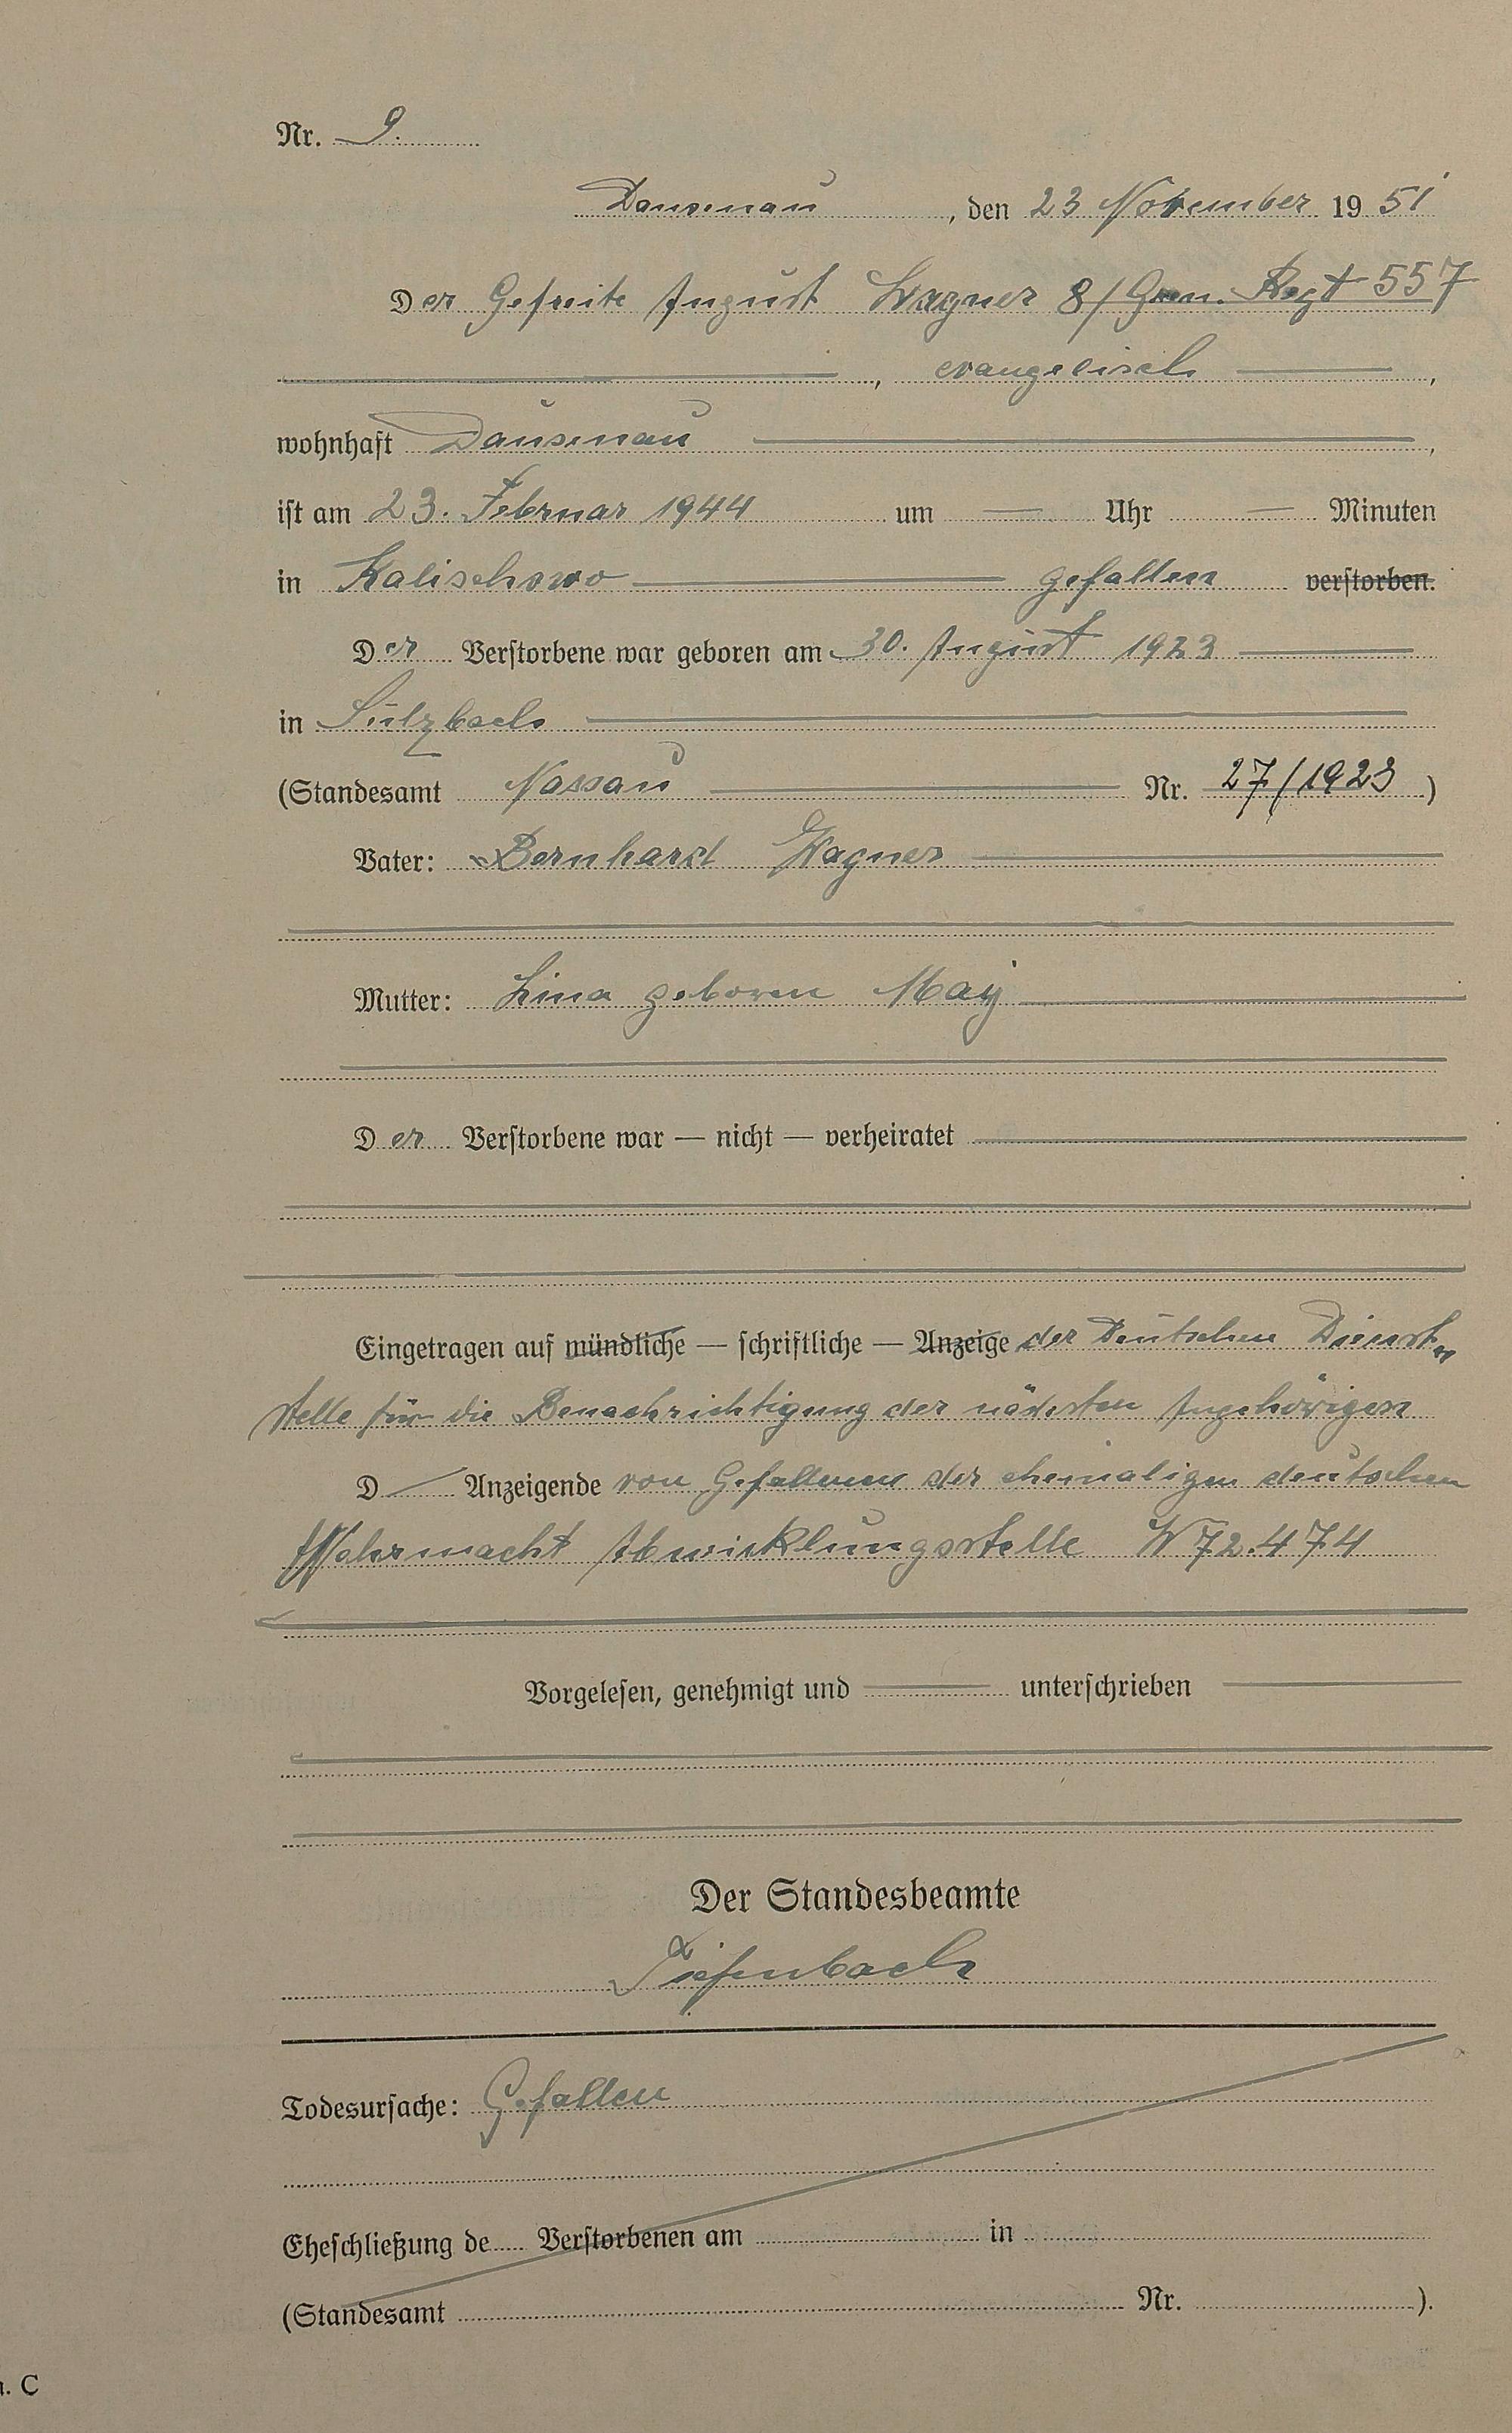 Nr. 9.
Dausenau, den 23 November 1951
Der Gefreite August Wagner 8/Gren. Regt 557
, evangelisch,
wohnhaft Dausenau,
ist am 23. Februar 1944 um — Uhr — Minuten
in Kalischowo gefallen verstorben.
Der Verstorbene war geboren am 30. August 1923
in Sulzbach
(Standesamt Nassau Nr. 27/1923)
Vater: Bernhard Wagner
Mutter: Lina geboren May
Der Verstorbene war — nicht — verheiratet
Eingetragen auf mündliche — schriftliche — Anzeige der Deutschen Dienst„
stelle für die Benachrichtigung der nächsten Angehörigen
D Anzeigende von Gefallenen der ehemaligen deutschen
Wehrmacht Abwicklungsstelle W 72.474
Vorgelesen, genehmigt und unterschrieben
Der Standesbeamte
Tiefenbach
Todesursache: Gefallen
Eheschließung de Verstorbenen am in
(Standesamt Nr. ).
. C